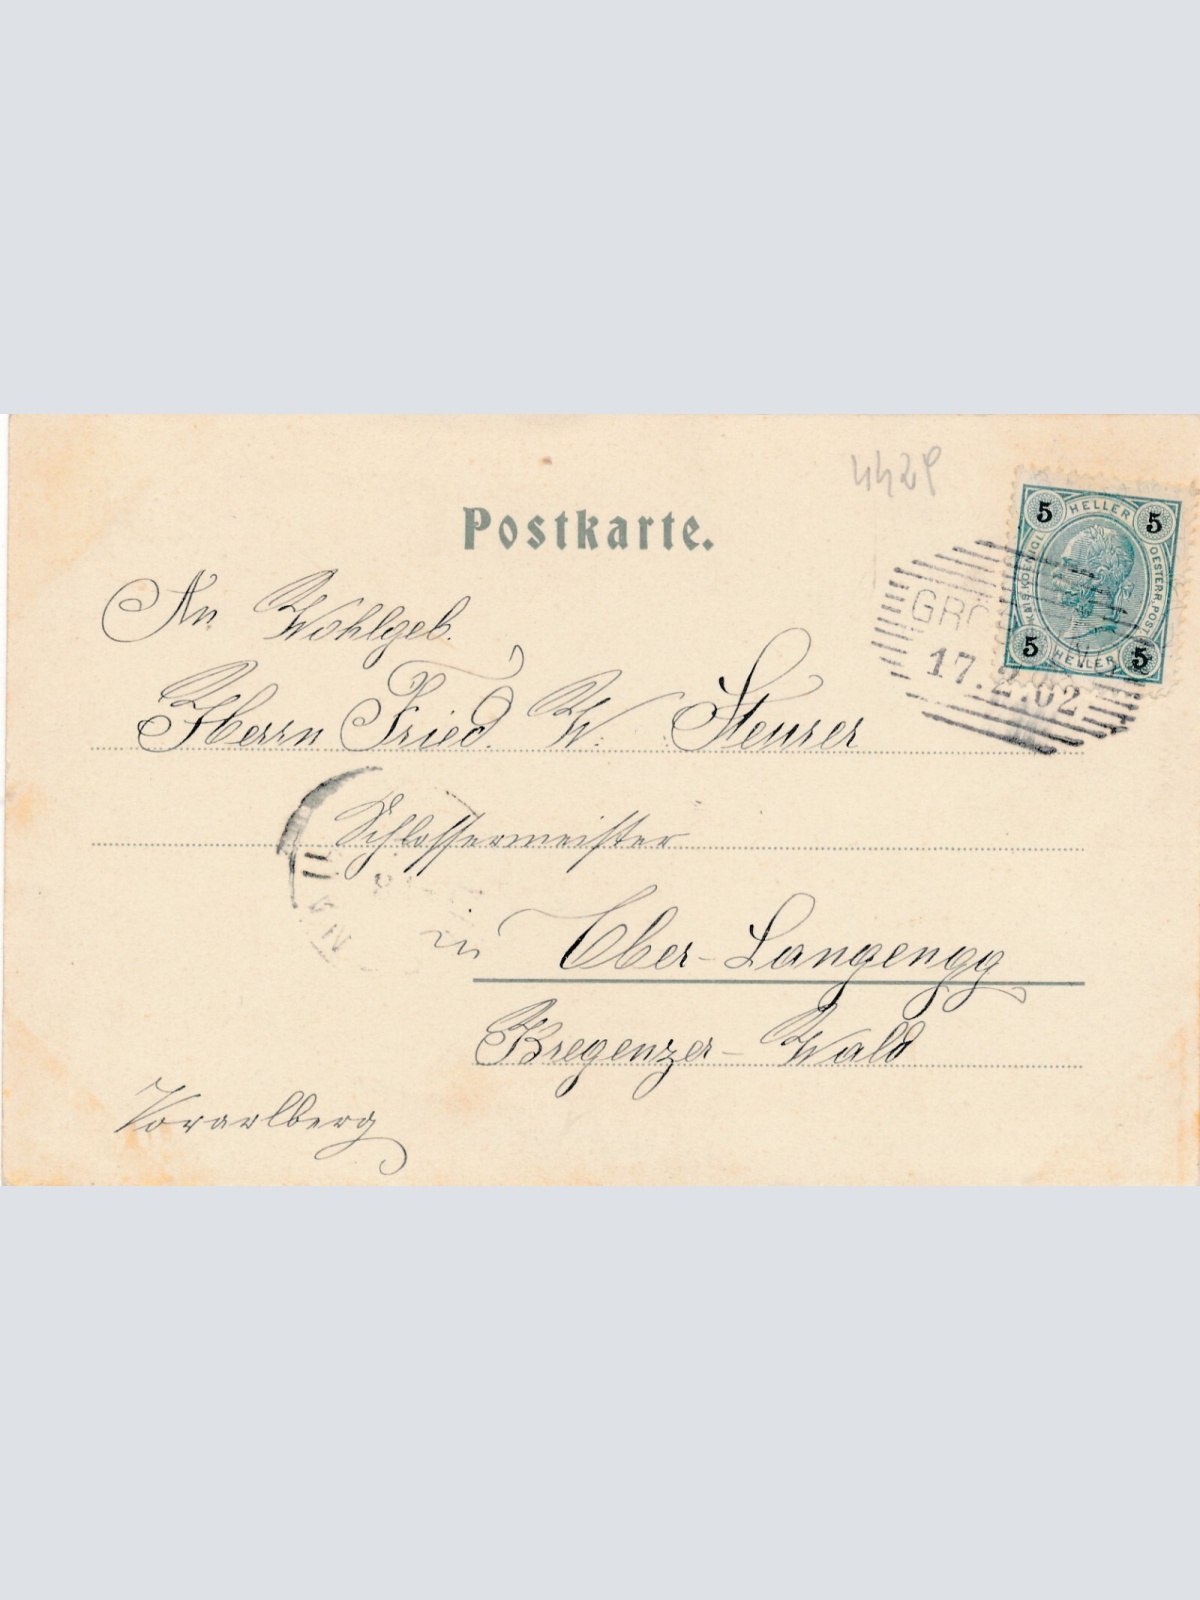 4429
Postkarte.
5 HELLER 5
KAIS. KOENIGL. OESTERR. POST
5 HELLER 5
GRÖ
17.2.02
An Wohlgeb.
Herrn Fried. W. Steurer
Schlossermeister
in Ober-Langengg
Bregenzer-Wald
Vorarlberg